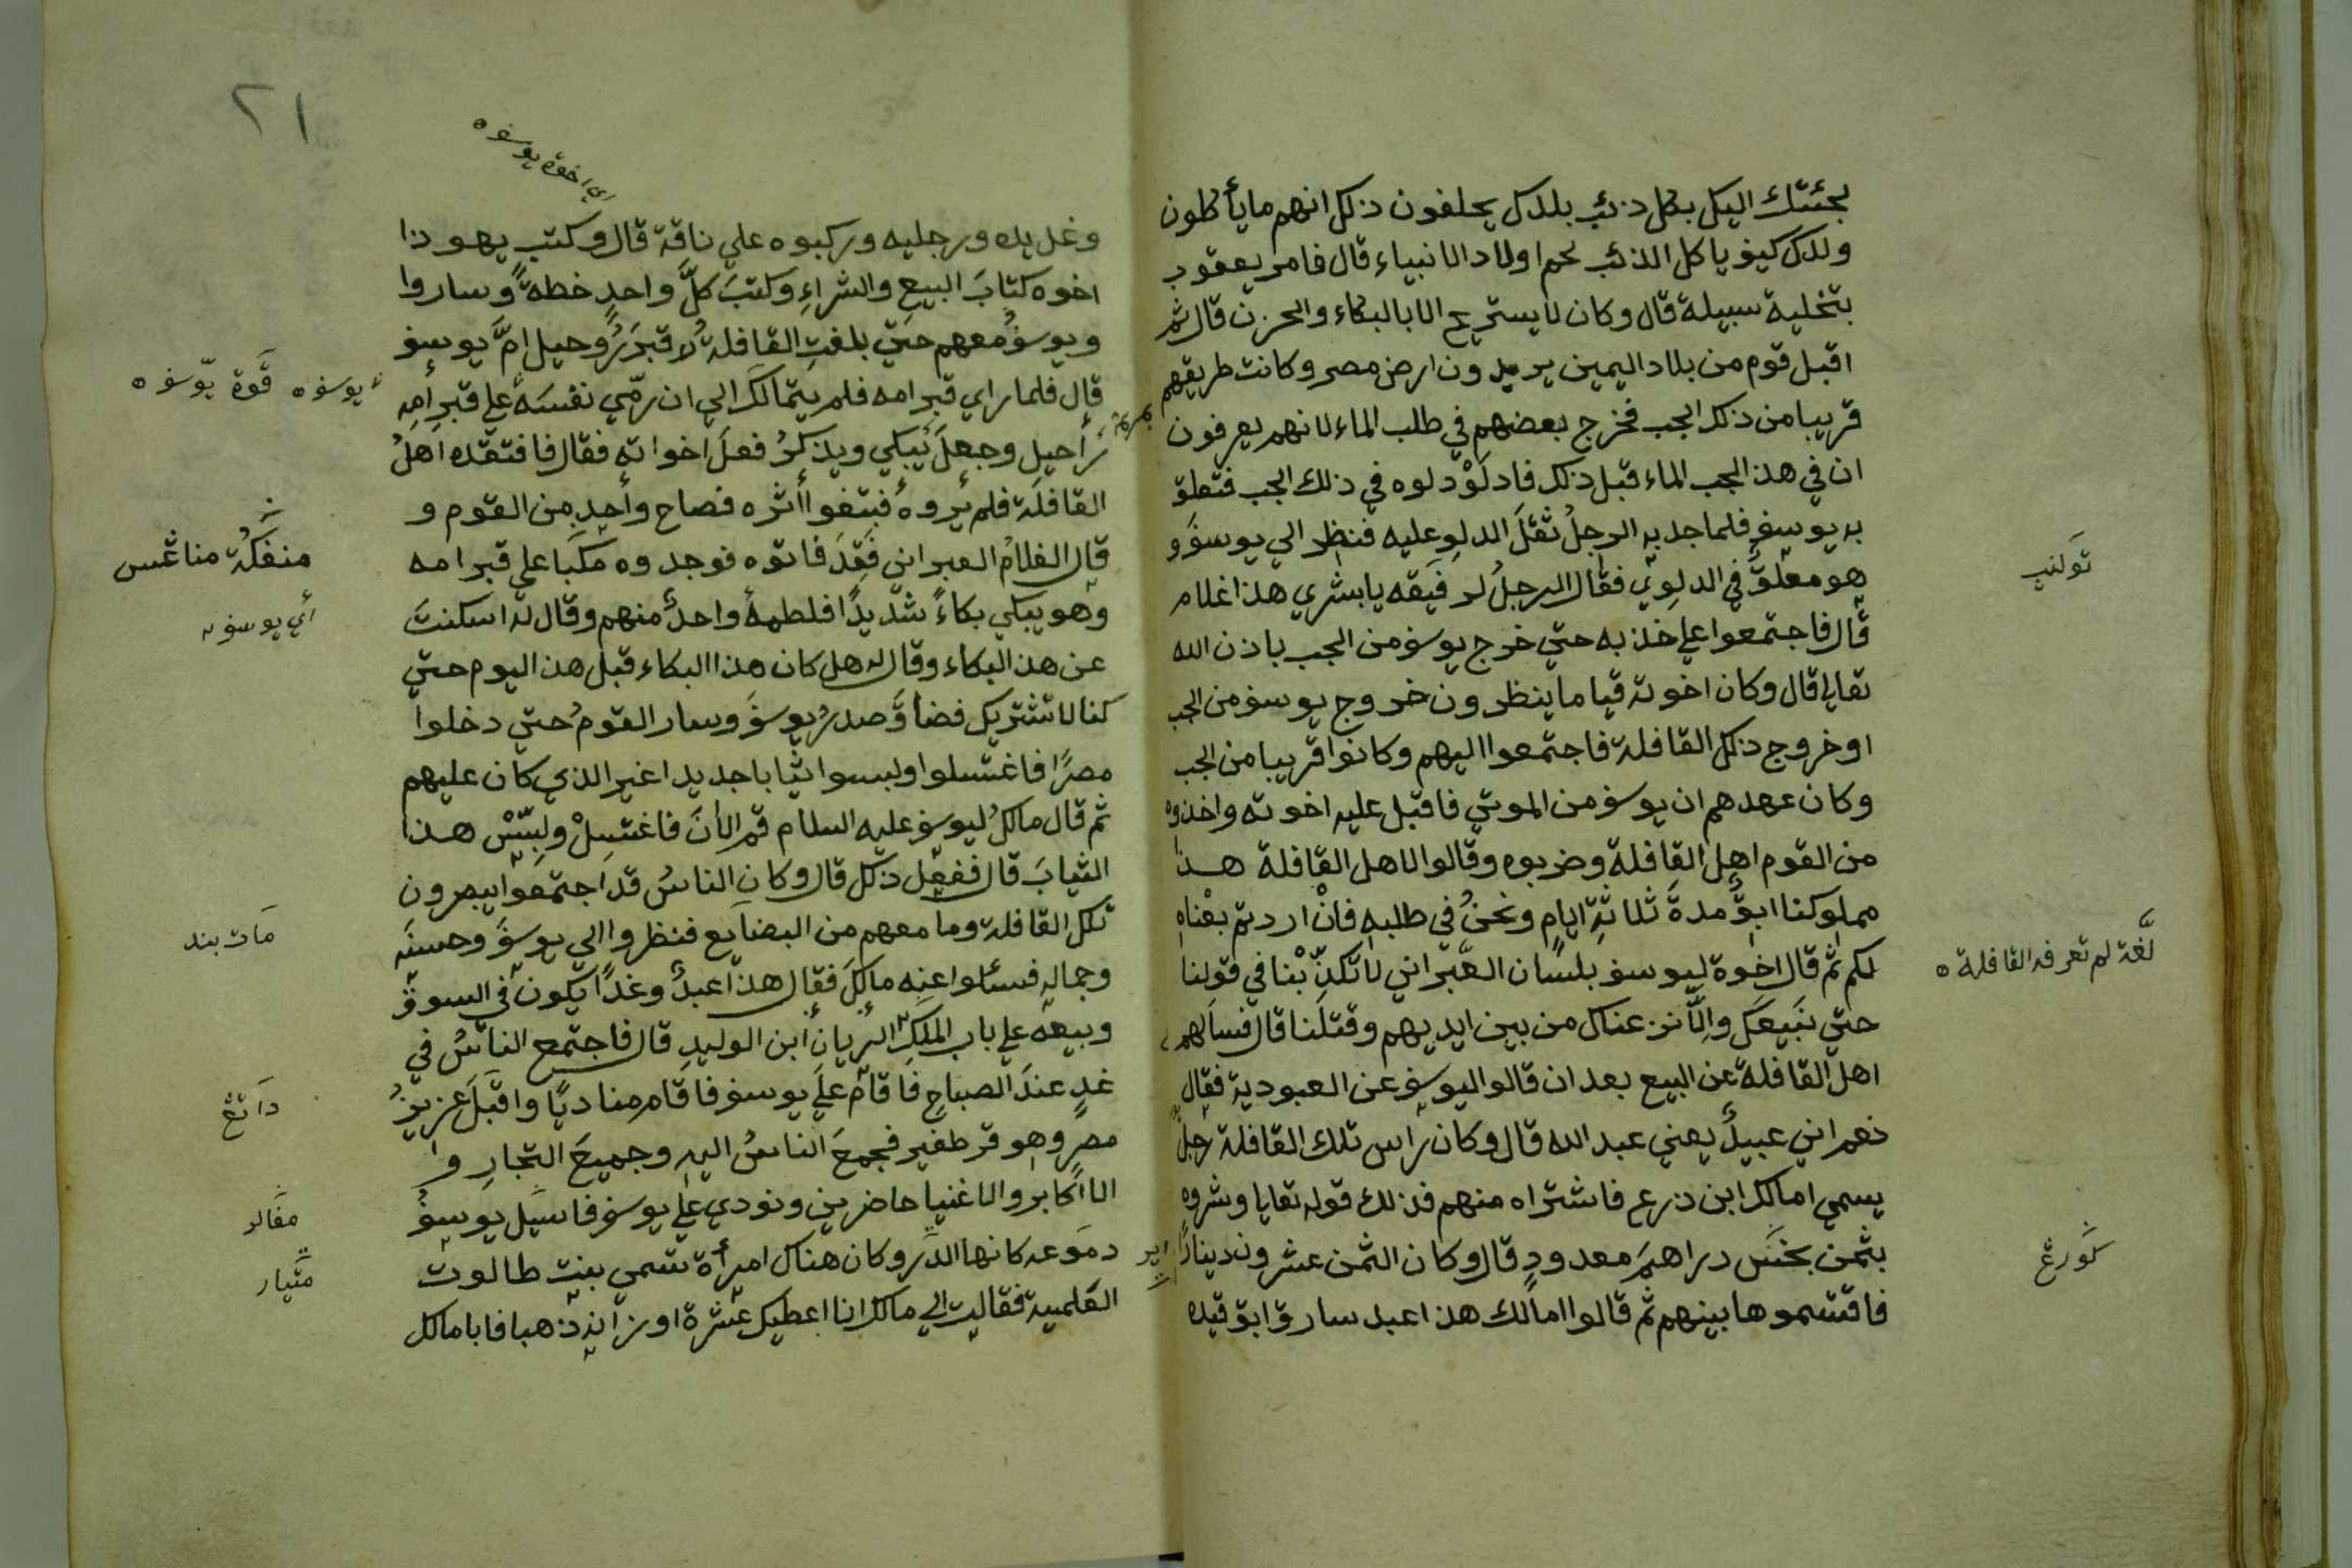 لجئتك اليك بكل ذئب بلدك يحلفون ذلك انهم ما يأكلون
ولدك كيف ياكل الذئب لحم اولاد الانبياء قال فامر يعقوب
بتخلية سبيلة قال وكان لا يستريح الا بالبكاء والحزن قال ثم
اقبل قوم من بلاد اليمين يريدون ارض مصر وكانت طريقهم
قريبا من ذلك الجب فخرج بعضهم في طلب الماء لانهم يعرفون
ان في هذ الجب الماء قبل ذلك فادلَوْ دلوه في ذلك الجب فتعلق
به يوسف فلما جد به الرجلُ ثقلَ الدلوِ عليه فنظر الي يوسفَ و
هو معلقٌ في الدلوي فقال الرجلُ لرفيقه يا بشري هذا غلام
قال فاجتمعوا علي خذبه حتي خرج يوسف من الجب باذن الله
تعالي قال وكان اخوته قياما ينظرون خروج يوسف من الجب
او خروج ذلك القافلة فاجتمعوا اليهم وكانوا قريبا من الجب
وكان عهدهم ان يوسف من الموتي فاقبل عليه اخوته واخذوه
من القوم اهل القافلة وضربوه وقالوا لاهل القافلة هذا
مملوكنا ابقٌ مدةَ ثلاثةِ ايامٍ ونحنُ في طلبهِ فانْ اردتم بعْناه
لكم ثم قال اخوة ليوسف بلسان العبراني لا تكذّبْنا في قولنا
حتي نبيعَك والّا نز عناك من بين ايديهم وقتلنا قال فسالهم
اهل القافلة عن البيع بعد ان قالوا ليوسف عن العبودية فقال
نعم اني عبيدٌ يعني عبد الله قال وكان راس تلك القافلة رجلٌ
يسمي امالك ابن ذرع فاشتراه منهم فذلك قوله تعايا وشروه
بثمن بخسٍ دراهمَ معدودٍ قال وكان الثمن عشرون دينارًا
فاقتسموها بينهم ثم قالوا امالك هذا عبد سارق ابق قيده
توكنب
لغة لم تعرفه القافلة ه
كورغ
٢١
اي اخوة يوسف ه
وغل يده ورجليه وركبوه علي ناقة قال وكتب يهوذا
اخوه كتابَ البيعِ والشراءِ وكتبَ كلَّ واحدٍ خطهُ وساروا
ويوسفُ معهم حتي بلغتِ القافلةُ لا قبرَ رُوحيل امَّ يوسف
قال فلما راي قبر امه فلم يتمالك الي ان رمّي نفسَهُ علي قبر امه
رأحيل وجعلَ يَبكي ويذكرُ فعلَ اخواته فقال فافتقده اهلُ
القافلة فلم يروهُ فبتغوا أثره فصاح وأحدٍ من القوم و
قال الغلامُ العبراني فَقِدَ فاتوه فوجدوه مكبَّا علي قبر امه
وهو يبكي بكاءً شديدًا فلطمهُ واحدٌ منهم وقال له اسكنت
عن هذ البكاء وقال له هل كان هذا البكاء قبل هذ اليوم حتي
كنا لا نشتريك فضاقَ صدرُ يوسفَ وسار القومُ حتي دخلوا
مصرًا فاغتسلوا ولبسوا ثيابا جديدا غير الذي كان عليهم
ثم قال مالكُ ليوسف عليه السلام قم الأنَ فاغتسِلْ ولبِّسْ هذا
الثيابَ قال ففعل ذلك قال وكان الناسُ قد اجتمعوا يبصرون
تلك القافلة وما معهم من البضايع فنظروا الي يوسفَ وحسنَه
وجماله فسئلوا عنه مالكَ فقال هذا عبدٌ وغدًا يكون في السوق
وبيعه علي باب الملك الريان ابن الوليدِ قال فاجتمع الناسُ في
غدٍ عندَ الصباحِ فاقام علَي يوسف فاقام مناديًا واقبلَ عزيزُ
مصرٍ وهو قرطفير فجمعَ الناسُ اليه وجميعَ التجارِ و
الااكابر والاغنيا حاضرين ونودي علي يوسف فاسَيل يوسفُ
دموعه كانها الدر وكان هناك امرأة تسمي بنت طالوت
القلمية فقالت الي مالك انا اعطيك عشرة اوزانه ذهبا فابا مالك
يوسف ه قوة يوسف ه
منفكة مناڠس
أي يوسف
مات بند
داتڠ
مڤالر
متيار